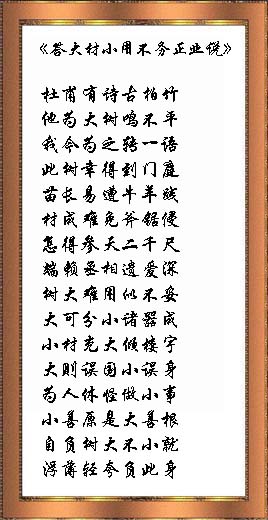 《答大材小用不务正业说》
杜甫有诗古柏行
他为大树鸣不平
我今为之转一语
此树幸得到门
苗长易遭牛羊践
材成难免斧锯侵
怎得参天二千尺
端赖丞相遗爱深
树大难用似不妥
大可分小诸器成
小材充大倾楼宇
大则误国小误身
为人休怪做小事
小善原是大善根
自负树大不小就
浮薄轻夸负此身